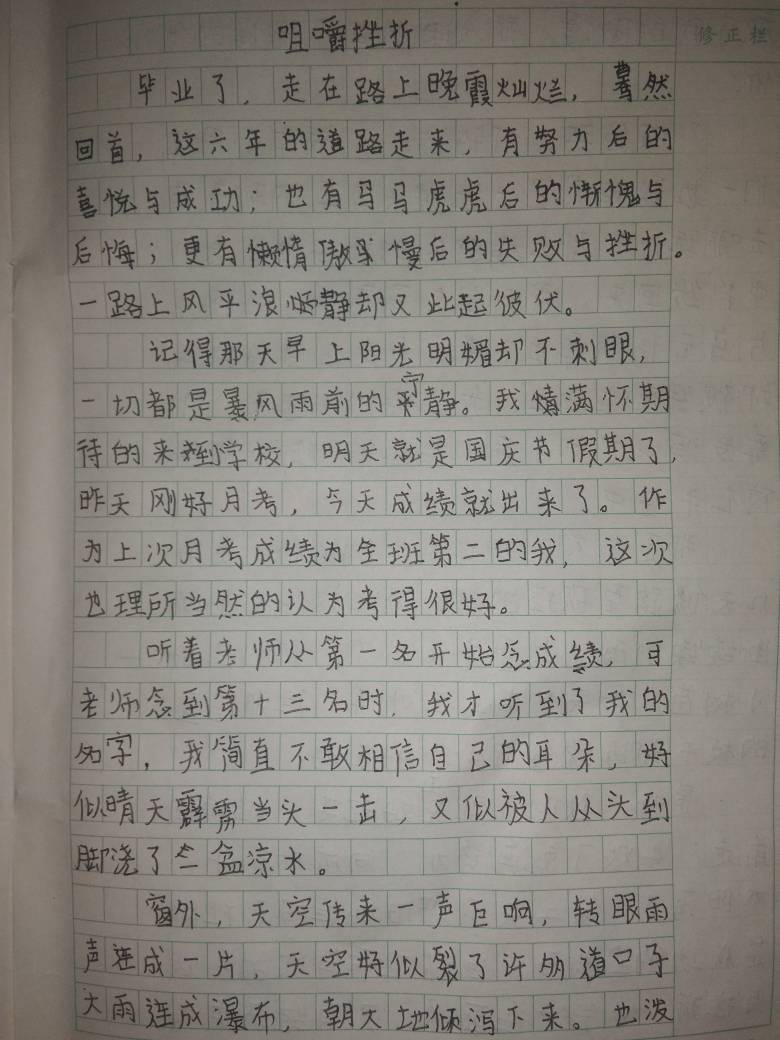 咀嚼挫折
修正栏
毕业了，走在路上晚霞灿烂，蓦然
回首，这六年的道路走来，有努力后的
喜悦与成功；也有马马虎虎后的惭愧与
后悔；更有懒惰傲慢后的失败与挫折。
一路上风平浪静却又此起彼伏。
记得那天早上阳光明媚却不刺眼，
一切都是暴风雨前的宁静。我情满怀期
待的来到学校，明天就是国庆节假期了，
昨天刚好月考，今天成绩就出来了。作
为上次月考成绩为全班第二的我，这次
也理所当然的认为考得很好。
听着老师从第一名开始念成绩，可
老师念到第十三名时，我才听到了我的
名字，我简直不敢相信自己的耳朵，好
似晴天霹雳当头一击，又似被人从头到
脚浇了一盆凉水。
窗外，天空传来一声巨响，转眼雨
声连成一片，天空好似裂了许多道口子
大雨连成瀑布，朝大地倾泻下来。也泼